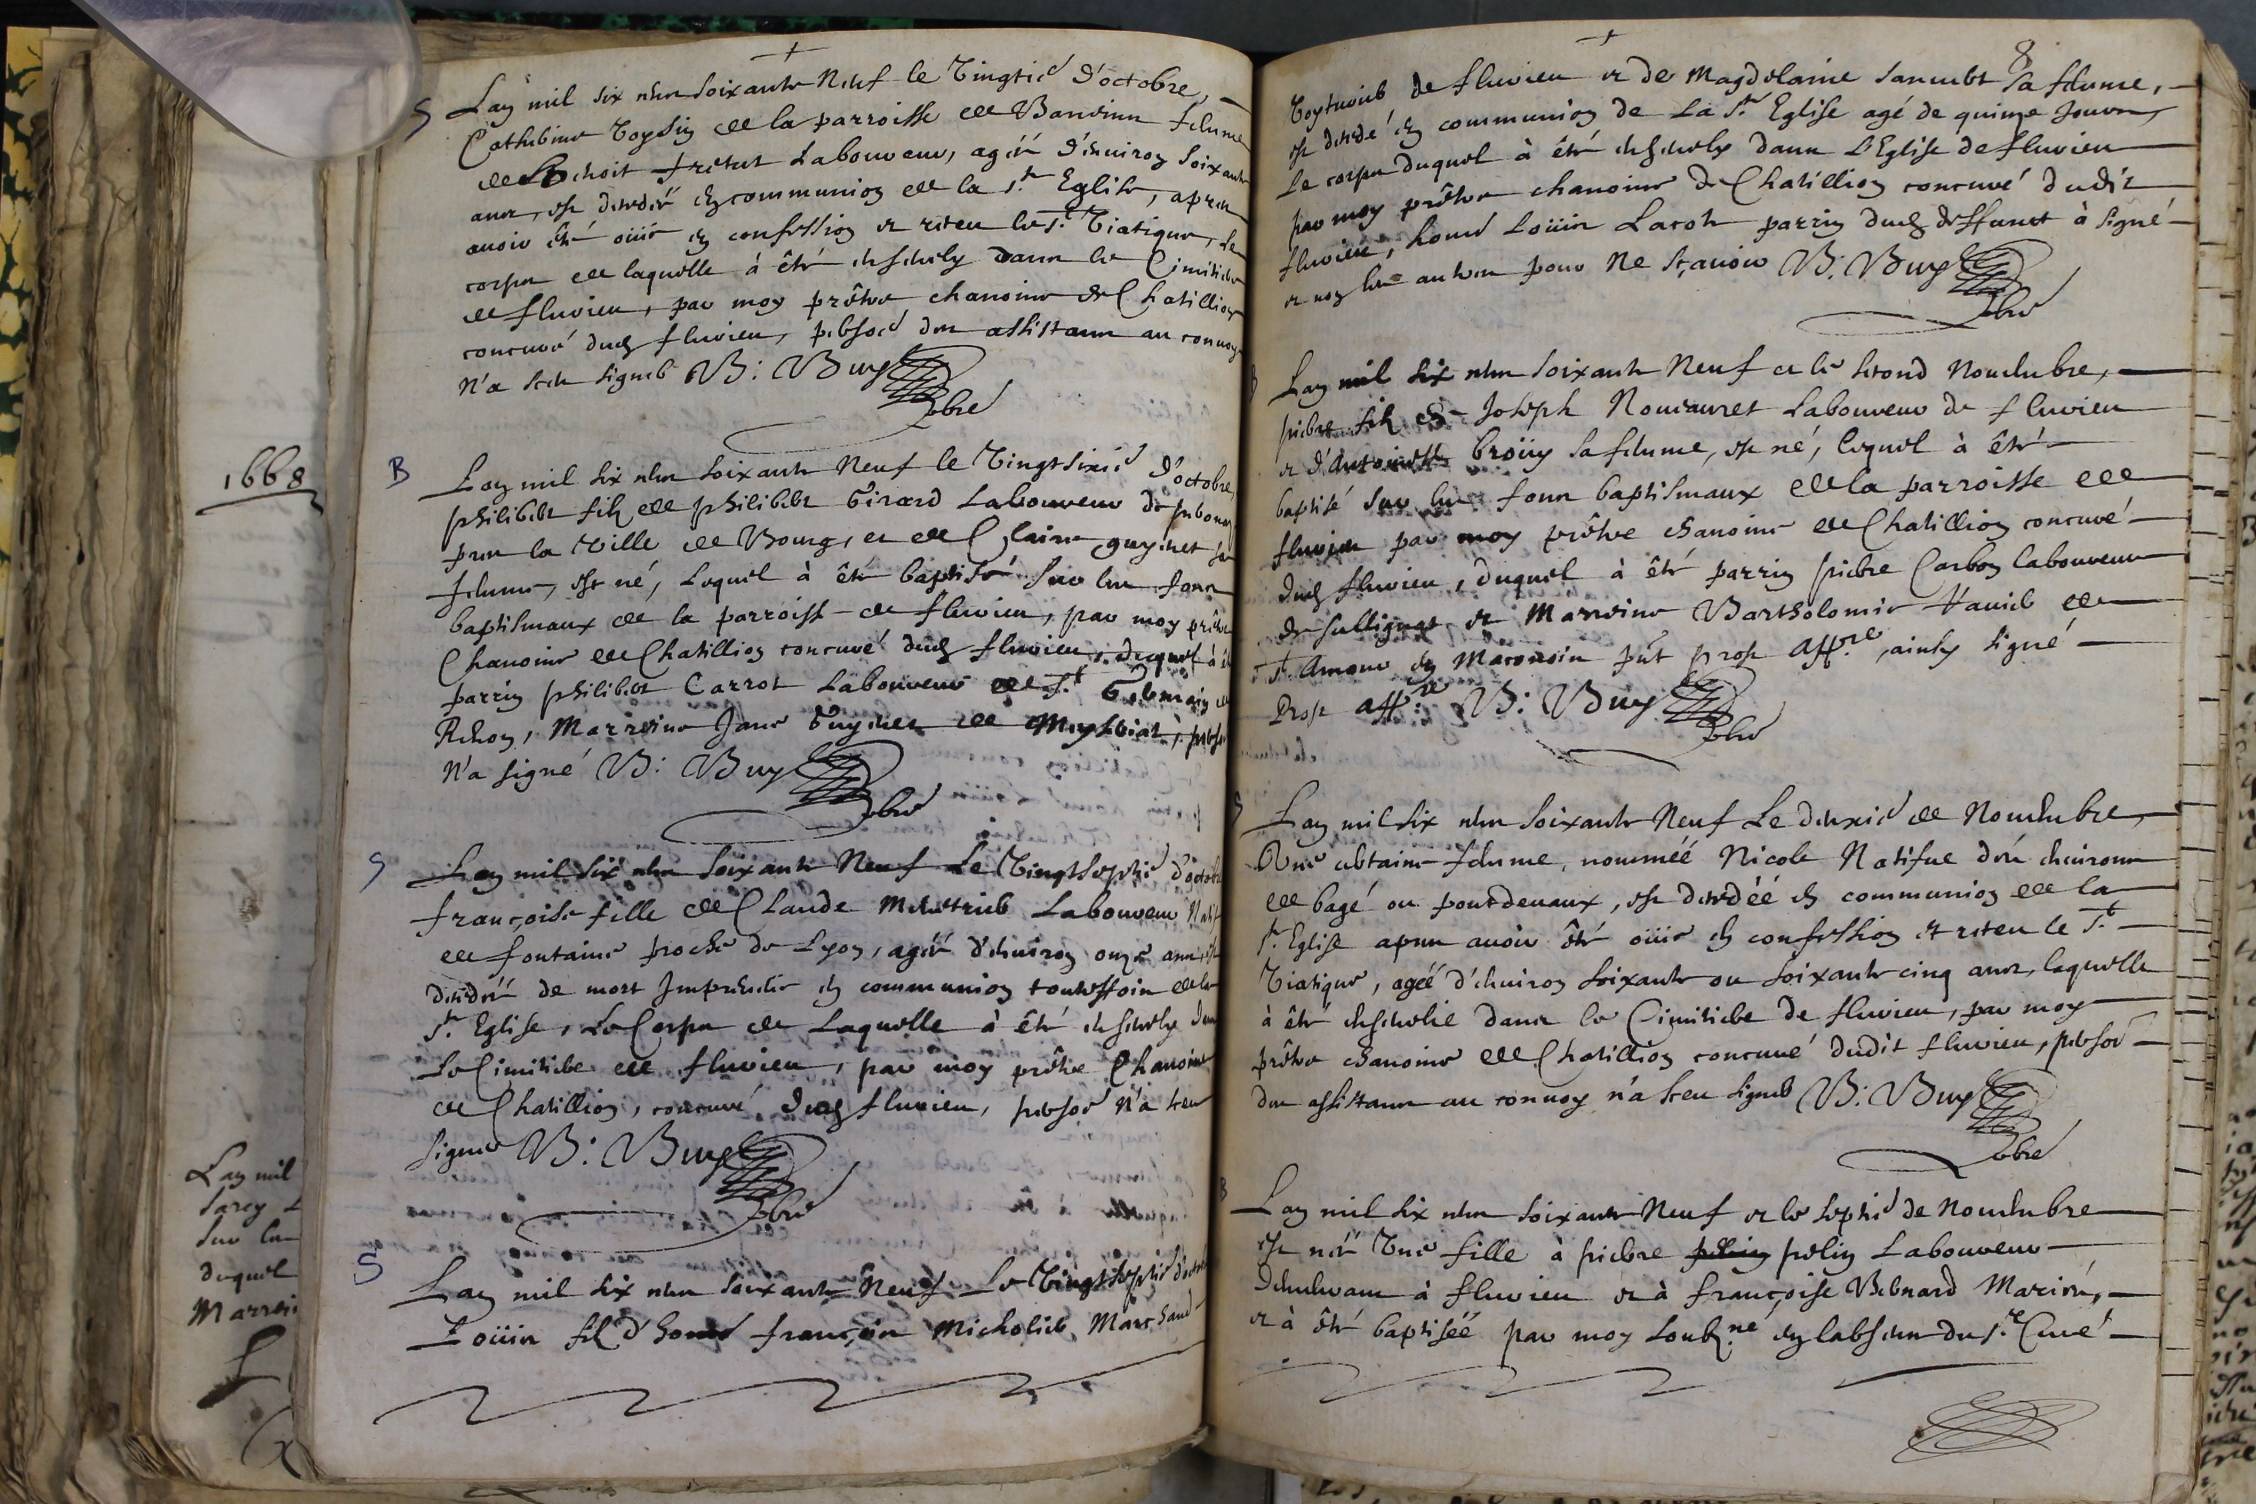 1668
Lan mil
Sur les
duquel
Marrei
+
S
Lan mil six cens soixante Neuf le vingtie d'octobre,
Catherine Voysin de la parroisse de femme
de Benoit Laboureur, agée d'environ soixante
ans, est decedée en communion de la ste Eglise, apres
avoir êté ouïe en confession et receu le st. Viatique, Le
corps de laquelle à êté ensevely dans le Cimitiere
de fluvieu, par moy prêtre chanoine de Chatillion
concuré dud fluvieu, persoe des assistans au convoy
n'a sceu signer B: Buy
pbre
B
Lan mil six cens soixante Neuf le vingtsixie d'octobre,
philibert fils de philibert Girard Laboureur de
pres la Ville de Bourg, et de Claire guynet sa
femme, est né, Lequel à êté baptisé sur les fons
baptismaux de la parroisse de fluvieu, par moy prêtre
Chanoine de Chatillion concuré dud fluvieu, duquel à êté
parrin philibert Carrot Laboureur de st. Germain de
Renon, Marreine Jane Guynet de perso
n'a signé B: Buy
pbre
S
Lan mil six cens soixante Neuf Le vingtseptie d'octobre
françoise fille de Claude Laboureur
de fontaine proche de Lyon, agée d'environ onze ans, est
decedée de mort en communion toutesfois de la
ste Eglise, Le Corps de Laquelle à êté ensevely dans
Le Cimitiere de fluvieu, par moy prêtre Chanoine
de Chatillion, concuré dud fluvieu, persoe n'a sceu
signer B: Buy
pbre
S
Lan mil six cens soixante Neuf Le vingtseptie d'octobre
Loüis fils d'honne françois Micholier, Marchand
+
8
de fluvieu et de Magdelaine sa femme,
est decedé en communion de La ste Eglise agé de quinze Jours,
Le corps duquel à êté ensevely dans L'Eglise de fluvieu
par moy prêtre chanoine de Chatillion concuré dudit
fluvieu, honne Loüis Lacoh parrin dud deffunct à signé
et non les autres pour ne sçavoir B: Buy
pbre
B
Lan mil six cens soixante Neuf et le second Novembre,
pierre fils de Joseph Laboureur de fluvieu
et d'Antoinette broüy sa femme, est né, lequel à êté
baptisé sur les fons baptismaux de la parroisse de
fluvieu par moy prêtre chanoine de Chatillion concuré
dud fluvieu, duquel à êté parrin pierre Carbon laboureur
de sullignat et Marreine Bartholomie de
st. Amour en Maconois pnt Prost affre, ainsy signé
Prost affre: B: Buy
pbre
S
Lan mil six cens soixante Neuf Le deuxie de Novembre,
Une certaine femme, nommée Nicole Natifue des environs
de bagé ou pontdevaux, est decedée en communion de la
ste Eglise apres avoir êté ouïe en confession et receu le st.
Viatique, agée d'environ soixante ou soixante cinq ans, laquelle
à êté ensevelie dans le Cimitiere de fluvieu, par moy
prêtre chanoine de Chatillion concuré dudit fluvieu, persoe
des assistans au convoy n'a sceu signer B: Buy
pbre
B
Lan mil six cens soixante Neuf et le septie de Novembre
est née Une fille à pierre pelin Laboureur
demeurant à fluvieu et à françoise Bernard Mariés,
et à êté baptisée par moy soubne en labsence du sr Curé